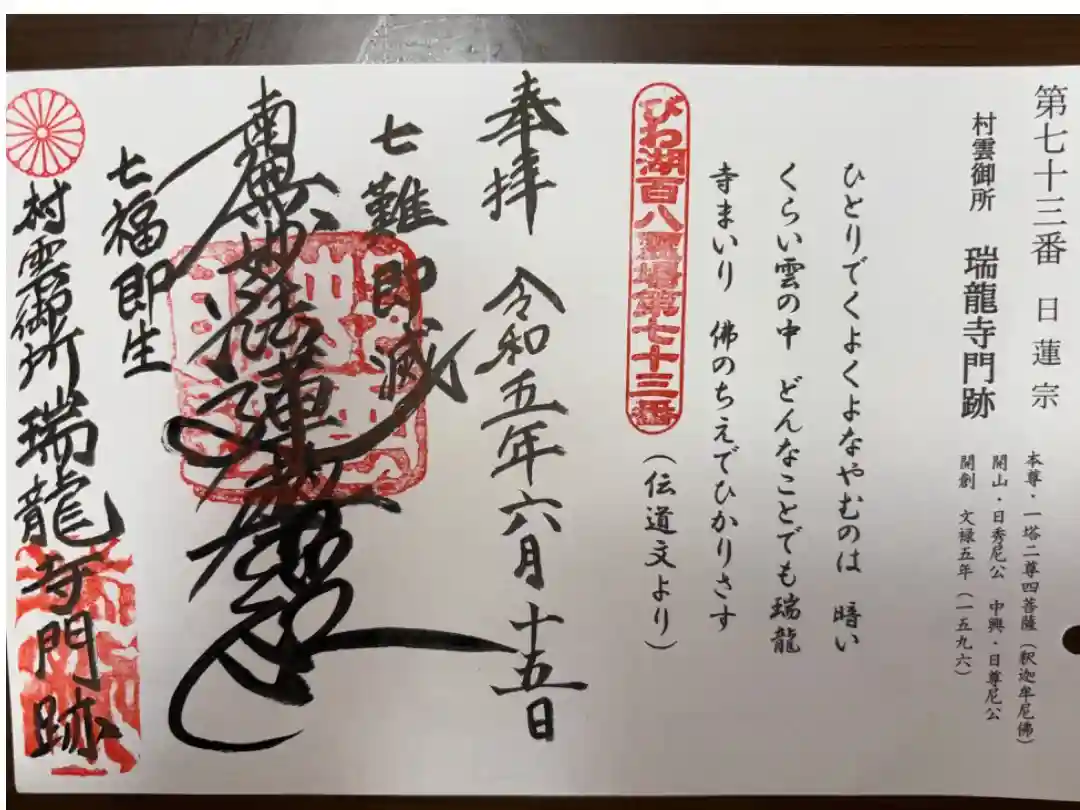 第七十三番 日蓮宗
村雲御所 瑞龍寺門跡
本尊・一塔二尊四菩薩（釈迦牟尼佛）
開山・日秀尼公 中興・日尊尼公
開創 文禄五年（一五九六）
ひとりでくよくよなやむのは 暗い
くらい雲の中 どんなことでも瑞龍
寺まいり 佛のちえでひかりさす
（伝道文より）
びわ湖百八霊場第七十三番
奉拝 令和五年六月十五日
七難即滅
南無妙法蓮華経
七福即生
村雲御所 瑞龍寺門跡